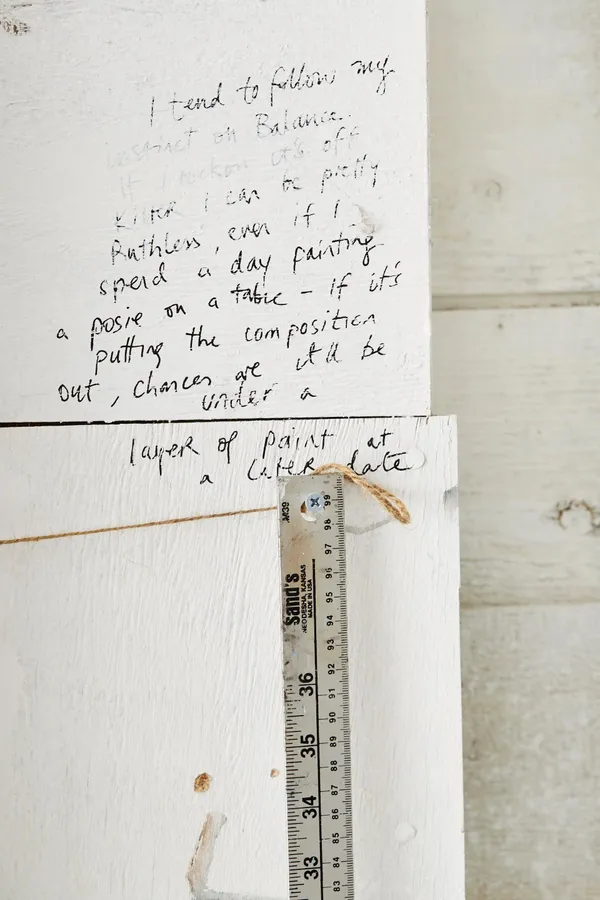 I tend to follow my
instinct on Balance.
If I reckon it's off
Kilter I can be pretty
Ruthless, even if I
spend a day painting
a posie on a table – If it's
putting the composition
out, chances are it'll be
under a
layer of paint at
a later date
M39
Sand's
NEODESHA, KANSAS
MADE IN USA
99
98
97
96
95
94
93
92
91
90
89
88
87
86
85
84
83
36
35
34
33